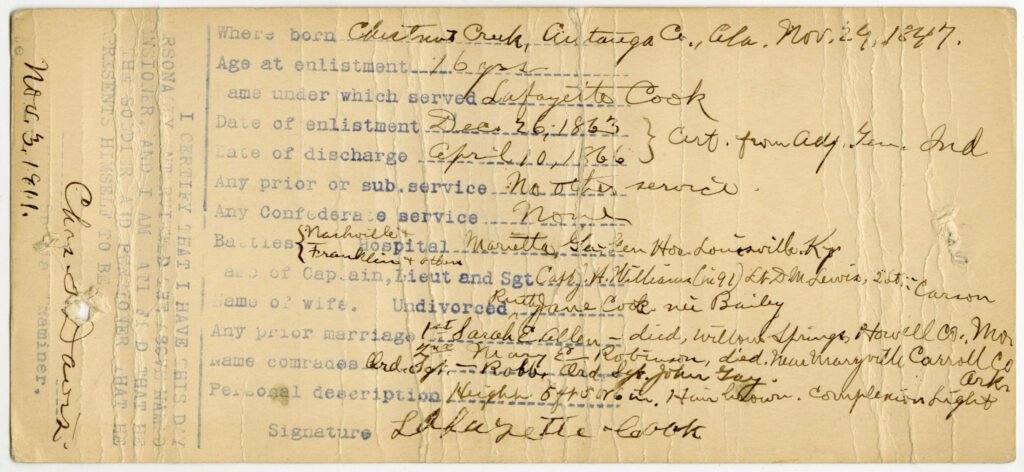 Where born Chestnut Creek, Autauga Co., Ala. Nov. 29, 1847.
Age at enlistment 16 yrs
ame under which served Lafayette Cook
Date of enlistment Dec. 26, 1863
Date of discharge April 10, 1866 } Cert. from Adj. Gen. Ind
Any prior or sub.service No other service.
Any Confederate service None
Battles { Nashville & Franklin & others Hospital Marietta, Ga. Gen Hos. Louisville, Ky
ame of Captain,Lieut and Sgt Capt J. H. Williams (in 91) Lt. D. M. Lewis, Carson
Name of wife. Undivorced Ruth Jane Cook nee Baily
Any prior marriage 1st Sarah E Allen - died, Willow Springs, Howell Co. Mo
2nd Mary E - Robinson, died. Near Maryville Carroll Co Ark
Name comrades Ord. Sgt. - Robb, Ord Sgt. John Gay.
Personal description Height 5 ft 5 or 6 in. Hair brown. Complexion Light
Signature Lafayette Cook
I CERTIFY THAT I HAVE THIS D
THE SOLDIER AND PENSIONER THAT HE
PRESENTS HIMSELF TO BE
xaminer.
Chas. Davis.
Nov. 3, 1911.